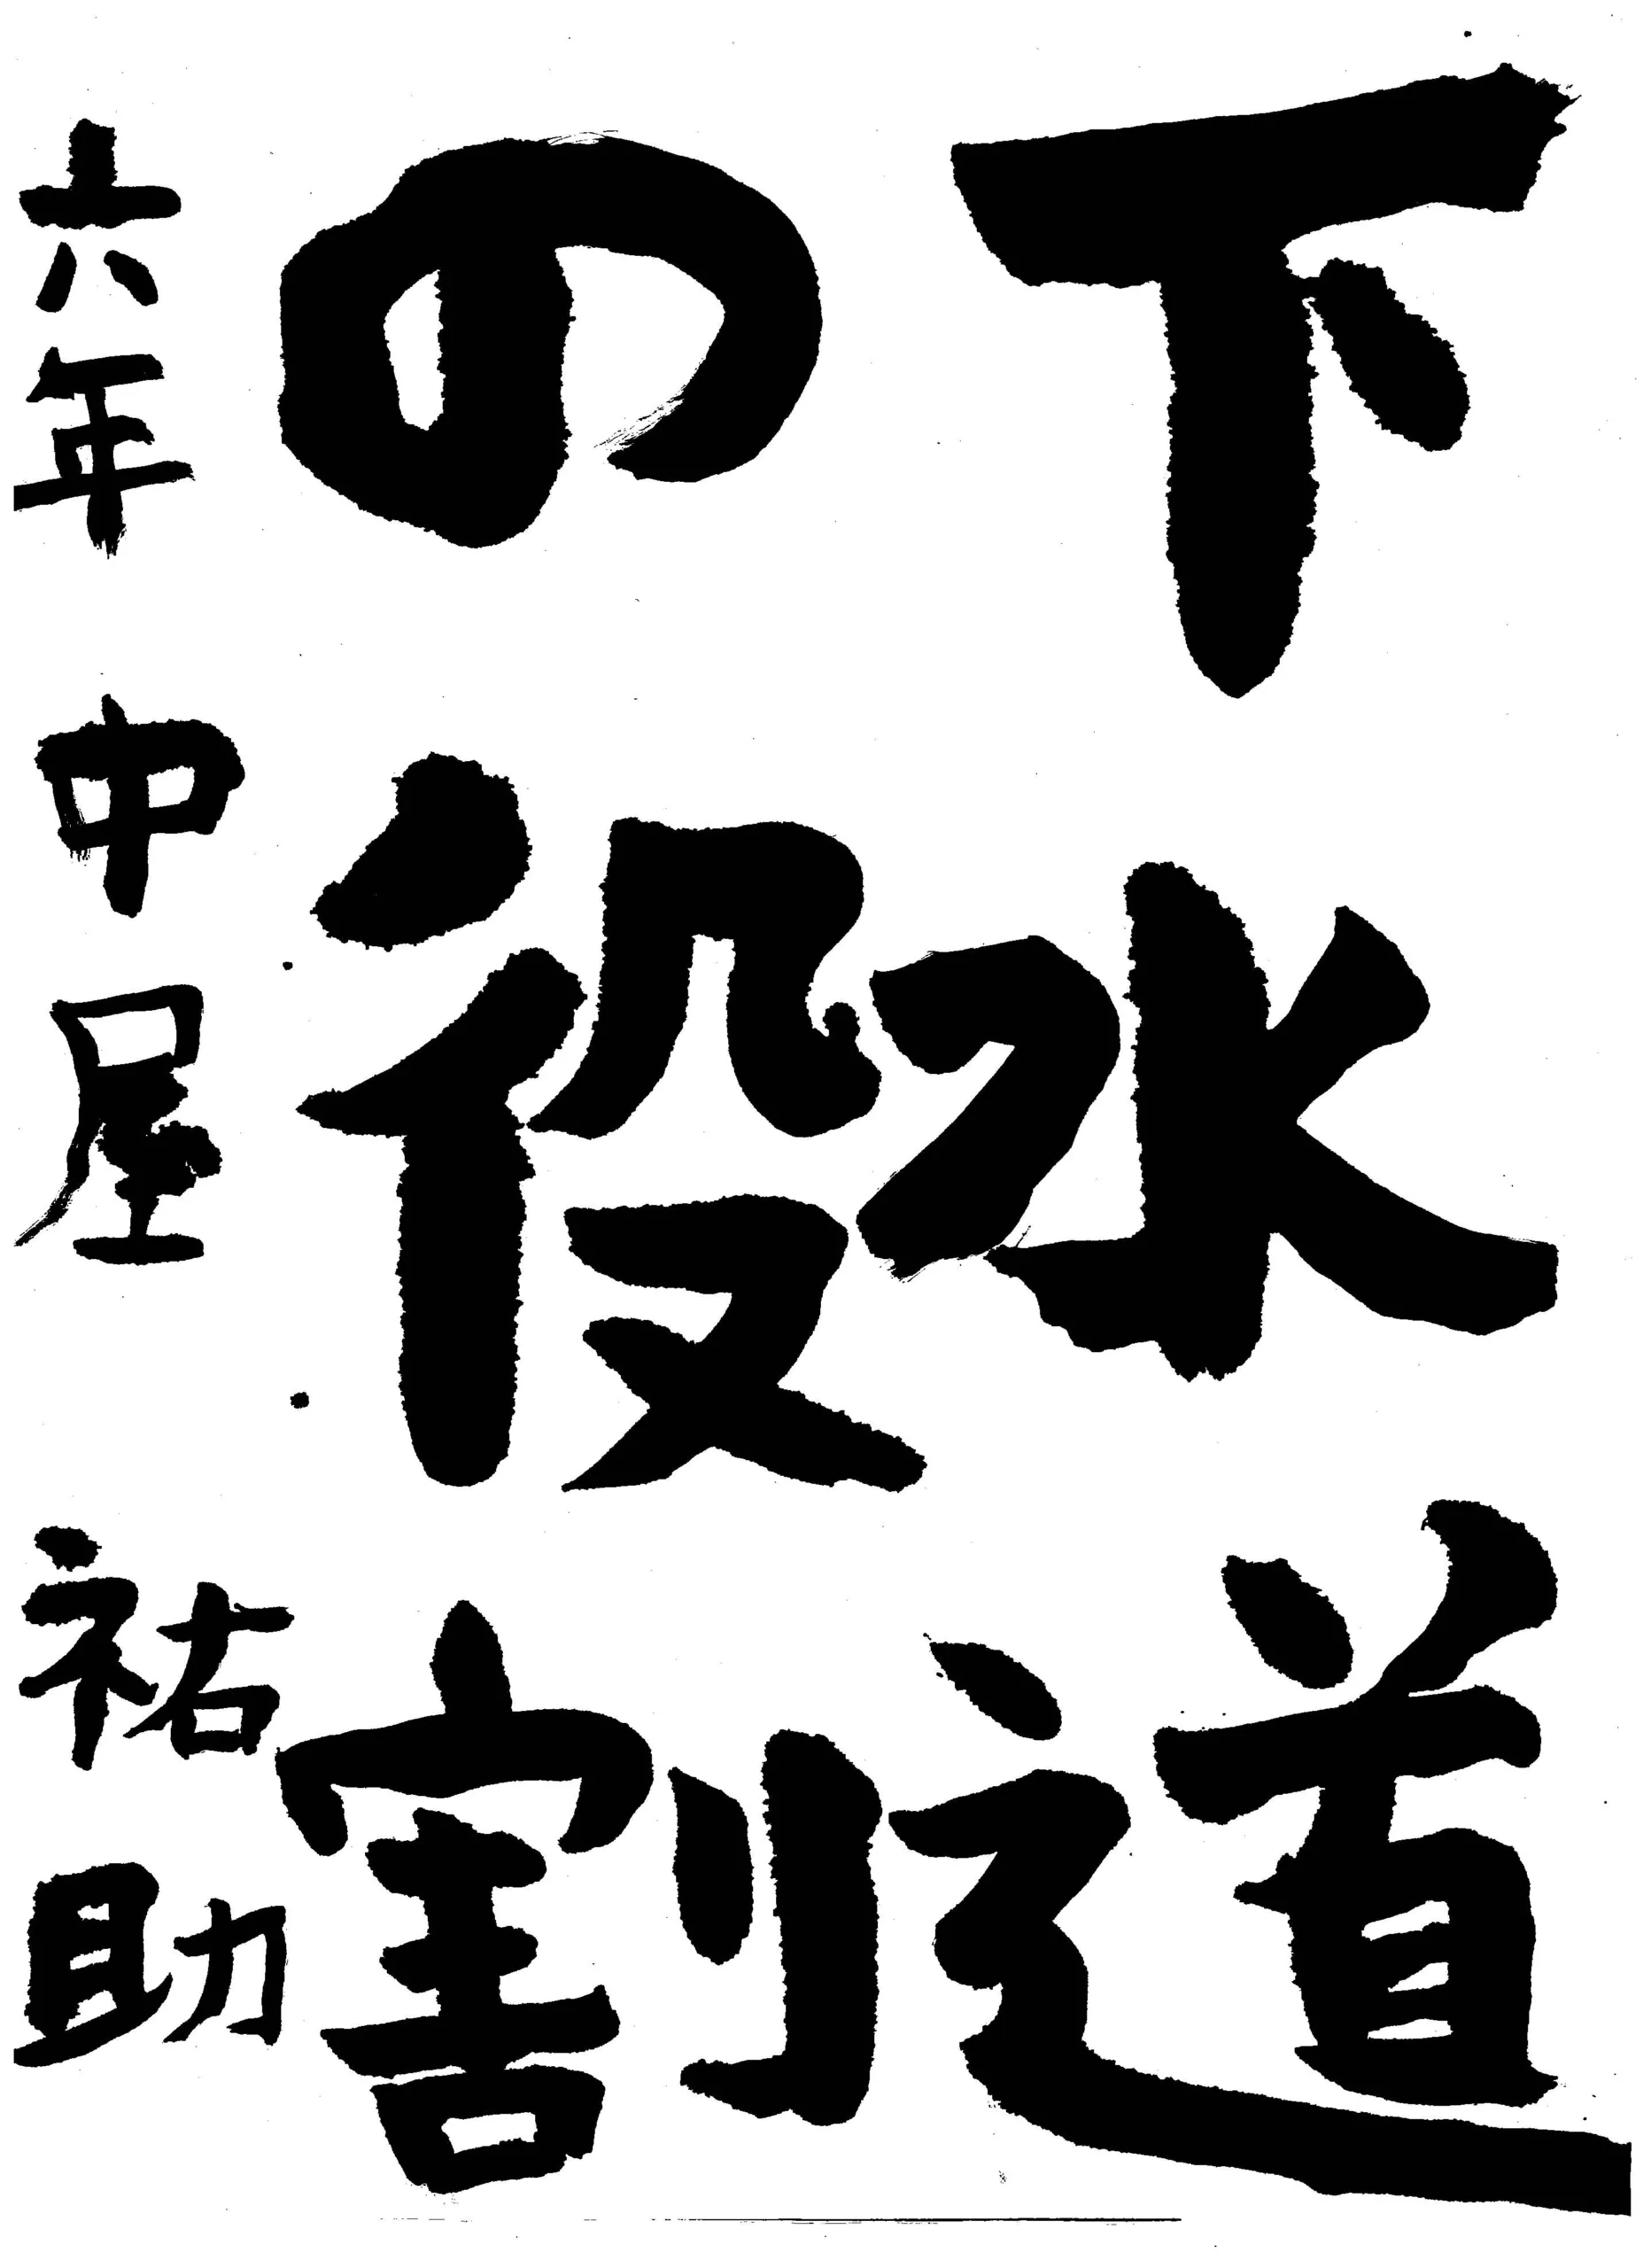 下水道
の役割
六年 中屋 祐助